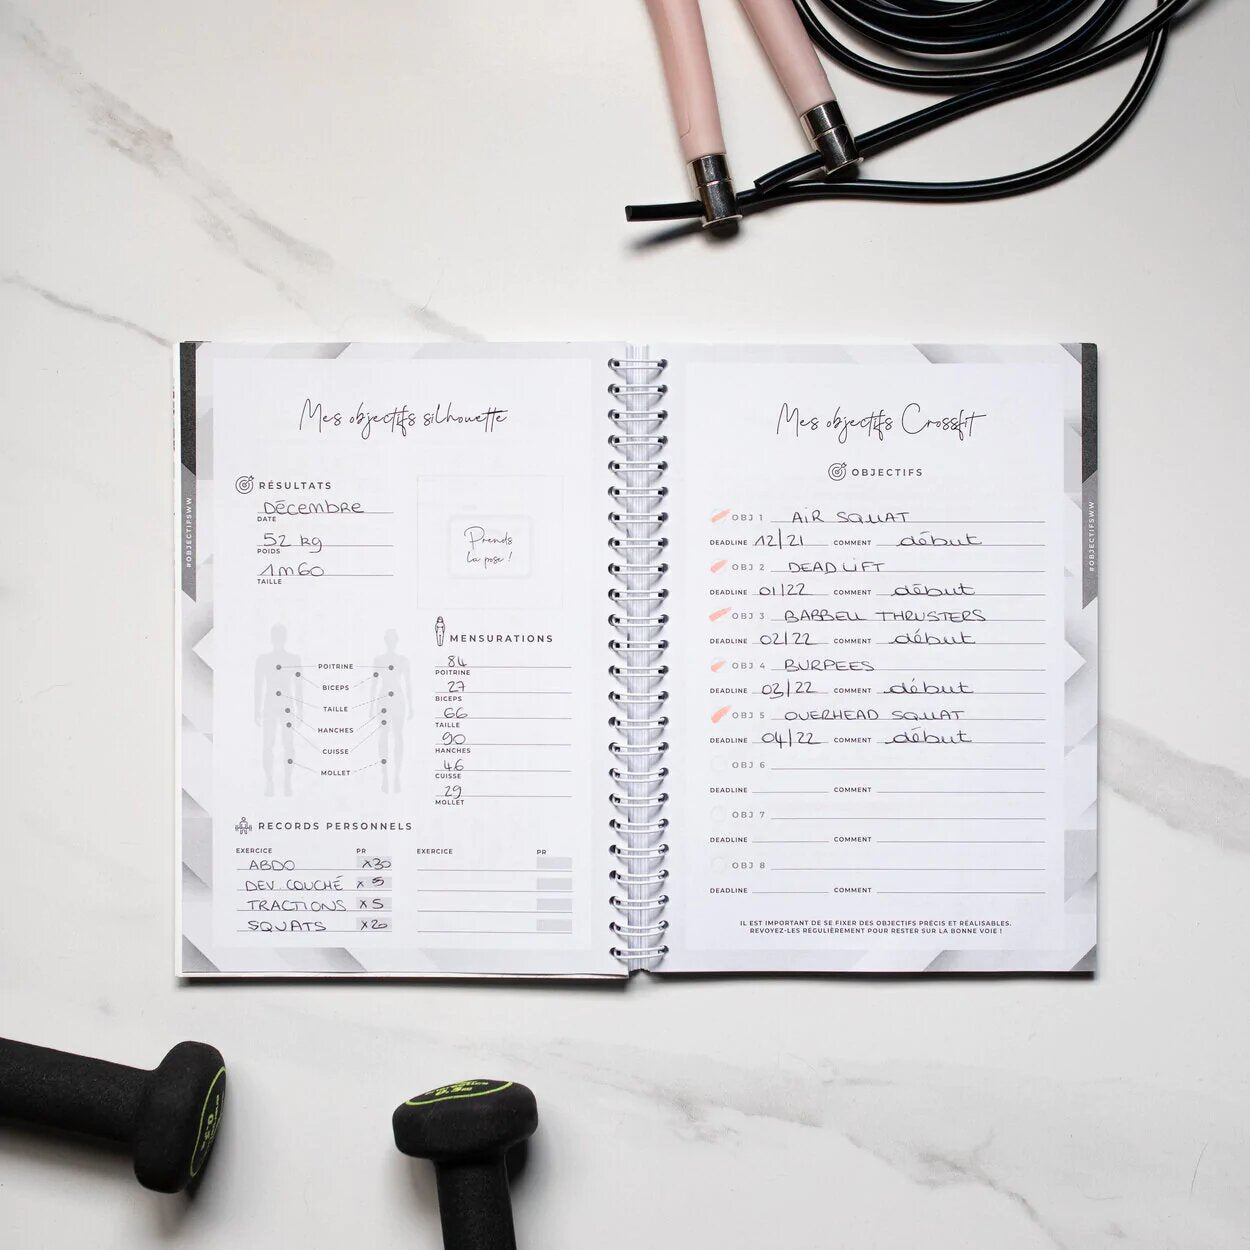 Mes objectifs silhouette
RÉSULTATS
Décembre
DATE
52 kg
POIDS
1m60
TAILLE
Prends
la pose !
#OBJECTIFSWW
POITRINE
BICEPS
TAILLE
HANCHES
CUISSE
MOLLET
MENSURATIONS
84
POITRINE
27
BICEPS
66
TAILLE
90
HANCHES
46
CUISSE
29
MOLLET
RECORDS PERSONNELS
EXERCICE PR EXERCICE PR
ABDO x30
DEV. COUCHÉ x 5
TRACTIONS x 5
SQUATS x20
Mes objectifs Crossfit
OBJECTIFS
OBJ 1 AIR SQUAT
DEADLINE 12/21 COMMENT début
OBJ 2 DEADLIFT
DEADLINE 01/22 COMMENT début
OBJ 3 BARBELL THRUSTERS
DEADLINE 02/22 COMMENT début
OBJ 4 BURPEES
DEADLINE 03/22 COMMENT début
OBJ 5 OVERHEAD SQUAT
DEADLINE 04/22 COMMENT début
OBJ 6
DEADLINE COMMENT
OBJ 7
DEADLINE COMMENT
OBJ 8
DEADLINE COMMENT
IL EST IMPORTANT DE SE FIXER DES OBJECTIFS PRÉCIS ET RÉALISABLES.
REVOYEZ-LES RÉGULIÈREMENT POUR RESTER SUR LA BONNE VOIE !
#OBJECTIFSWW